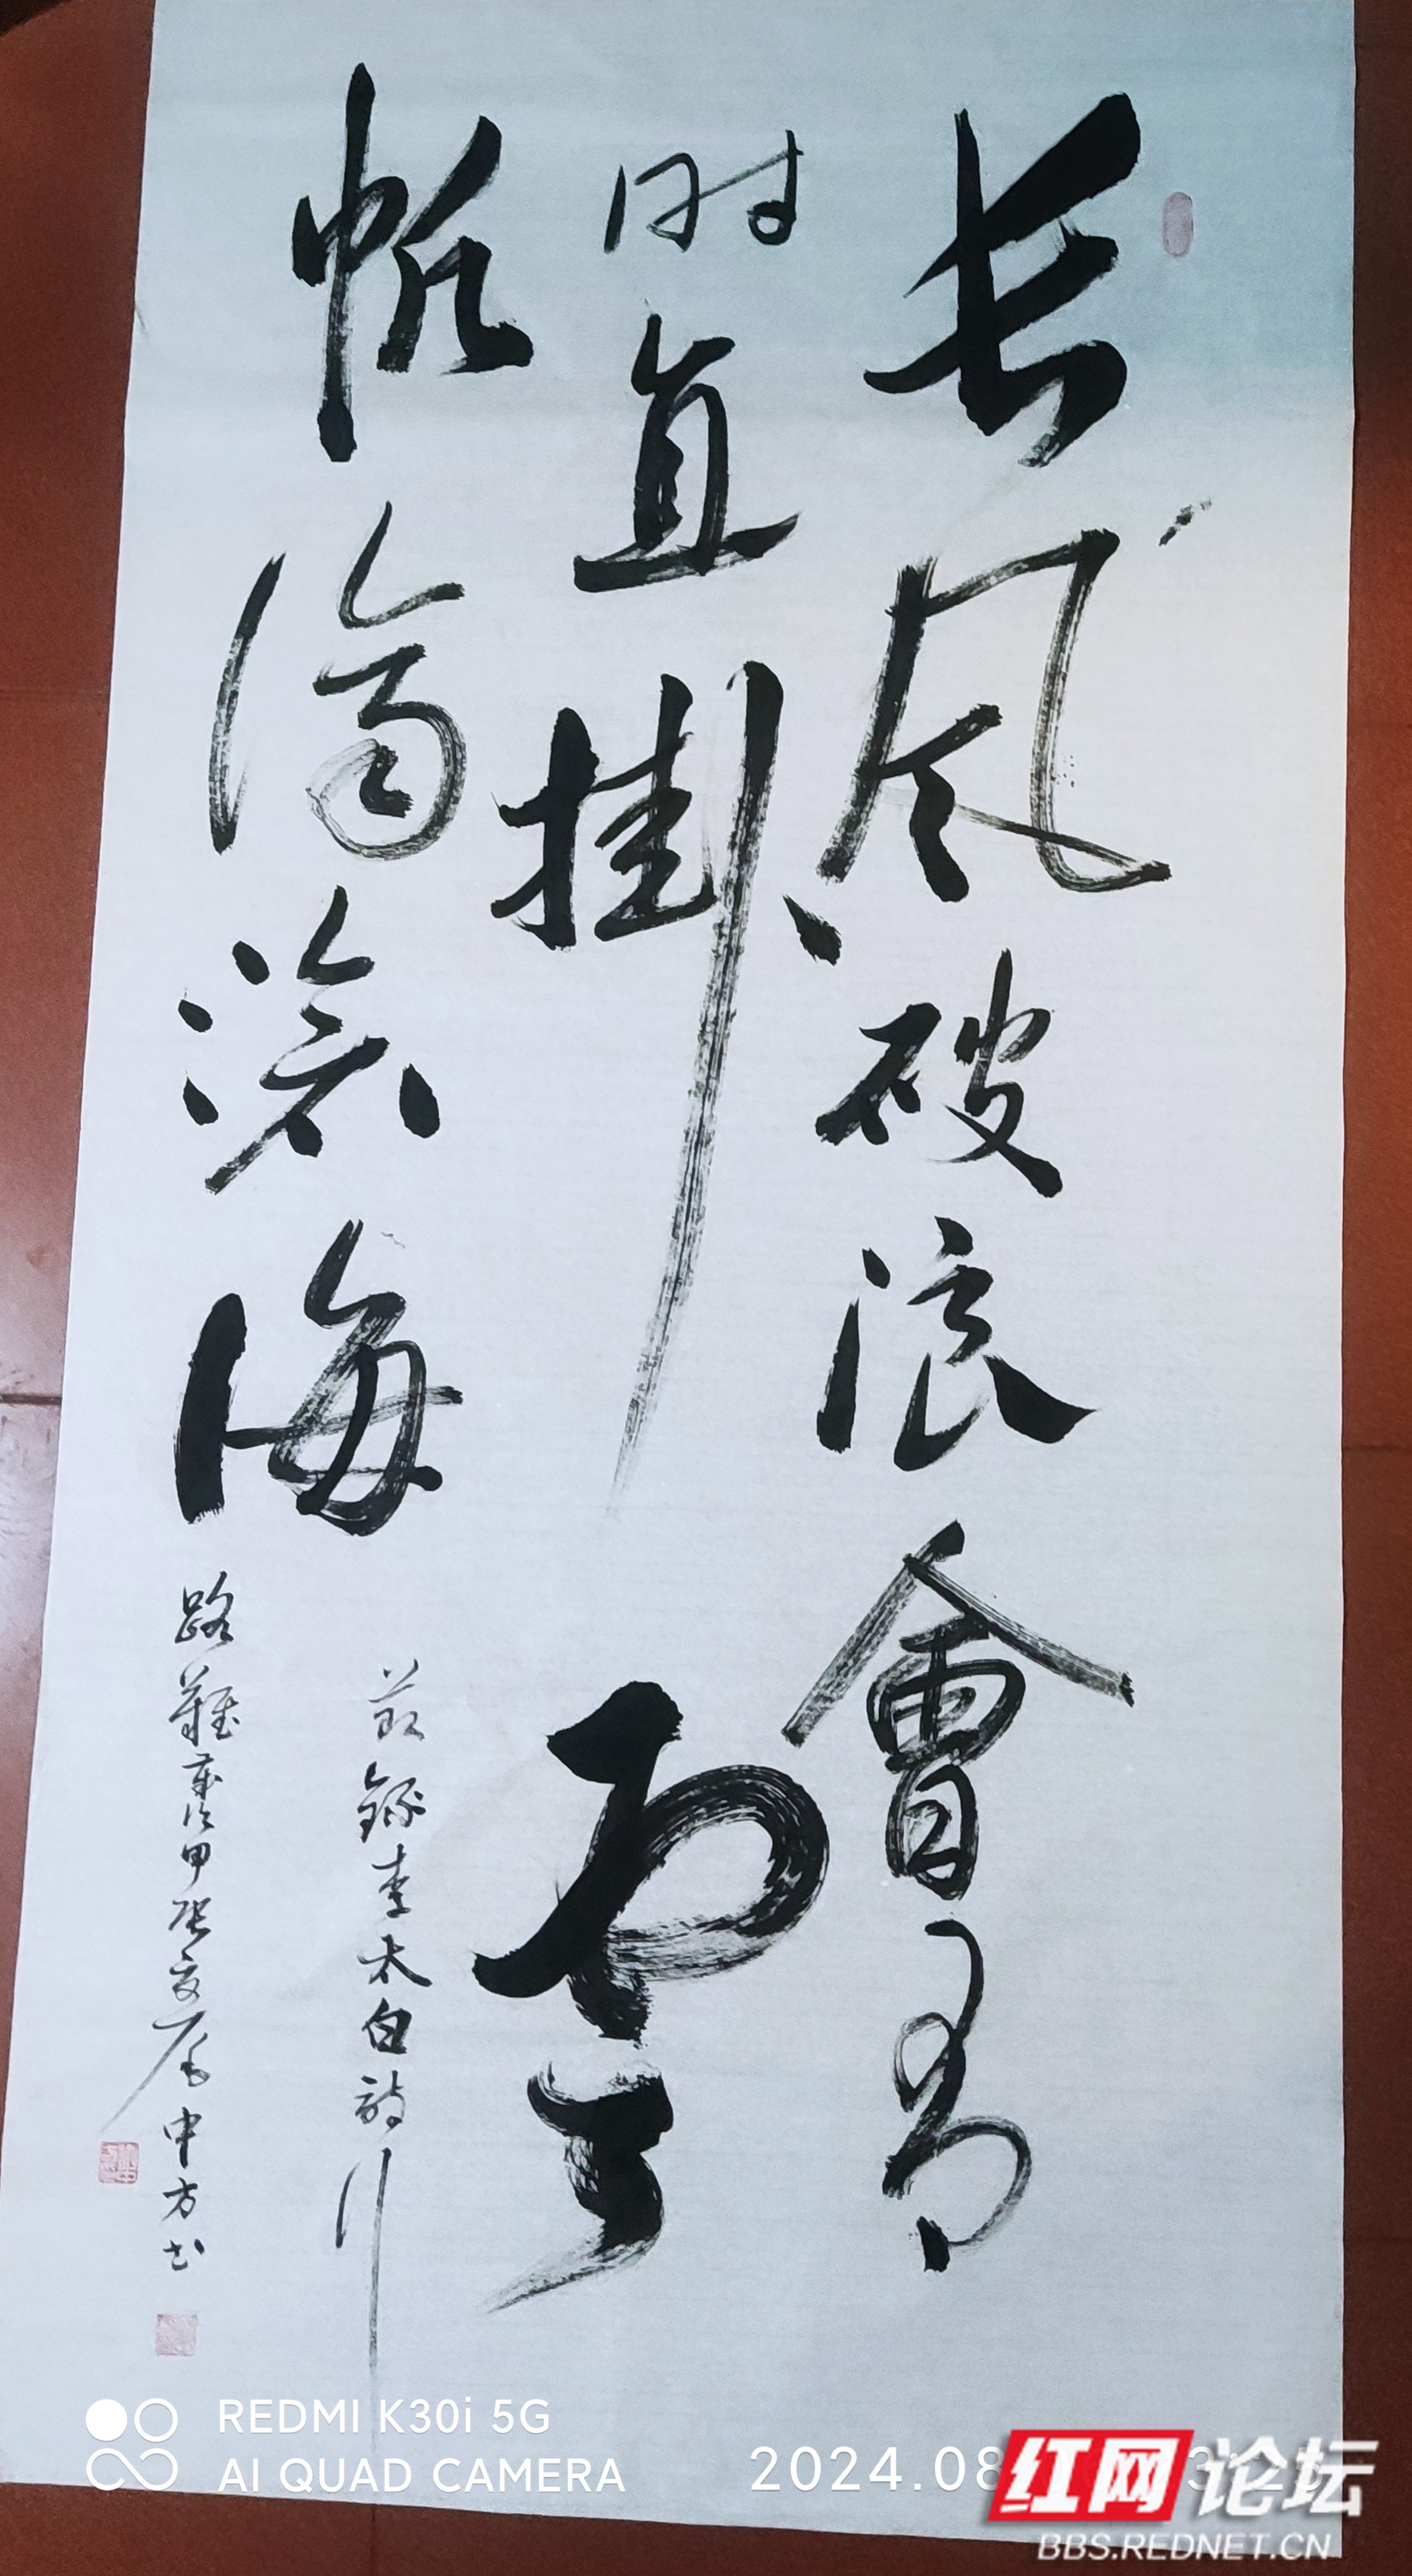 长风破浪會有
时直掛雲
帆濟滄海
節錄李太白詩行
路難甲辰夏尾中方书
REDMI K30i 5G
AI QUAD CAMERA
2024.08
红网论坛
BBS.REDNET.CN